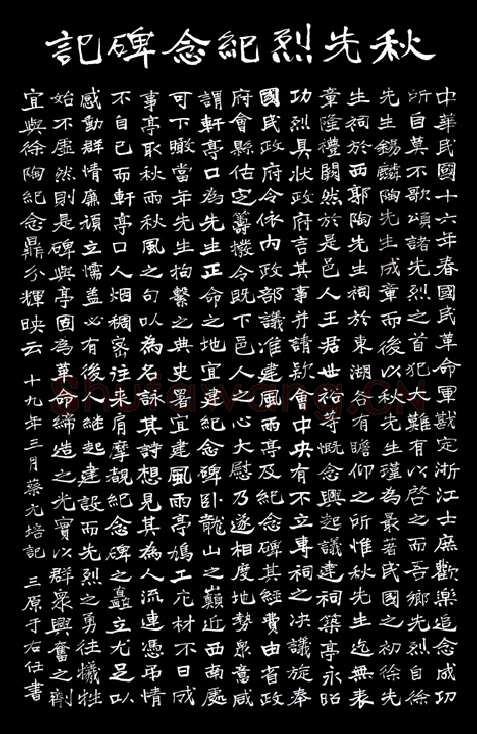 秋先烈紀念碑記
中華民國十六年春國民革命軍戡定浙江士庶歡樂追念成功
所自莫不歌頌諸先烈之首犯大難有以啓之而吾鄉先烈自徐
先生錫麟陶先生成章而後以秋先生瑾為最著民國之初徐先
生祠於西郭陶先生祠於東湖各有瞻仰之所惟秋先生迄無表
章隆禮闕然於是邑人王君世裕等慨念興起議建祠築亭永昭
功烈具狀政府言其事并請款會中央有不立專祠之决議旋奉
國民政府令依內政部議准建風雨亭及紀念碑其經費由省政
府會縣估定籌撥令既下邑人之心大慰乃遂相度地勢眾意咸
謂軒亭口為先生正命之地宜建紀念碑卧龍山之巔近西南處
可下瞰當年先生拘繫之典史署宜建風雨亭鳩工庀材不日成
事亭取秋雨秋風之句以為名詠其詩想見其為人流連憑弔情
不自已而軒亭口人烟稠密往來肩摩覩紀念碑之矗立尤足以
感動群情廉頑立懦盖必有後人繼起建設而先烈之勇往犧牲
始不虛然則是碑與亭固為革命締造之光實以群眾興奮之劑
宜與徐陶紀念鼎分輝映云 十九年三月蔡元培記 三原于右任書
Shufawang.CN